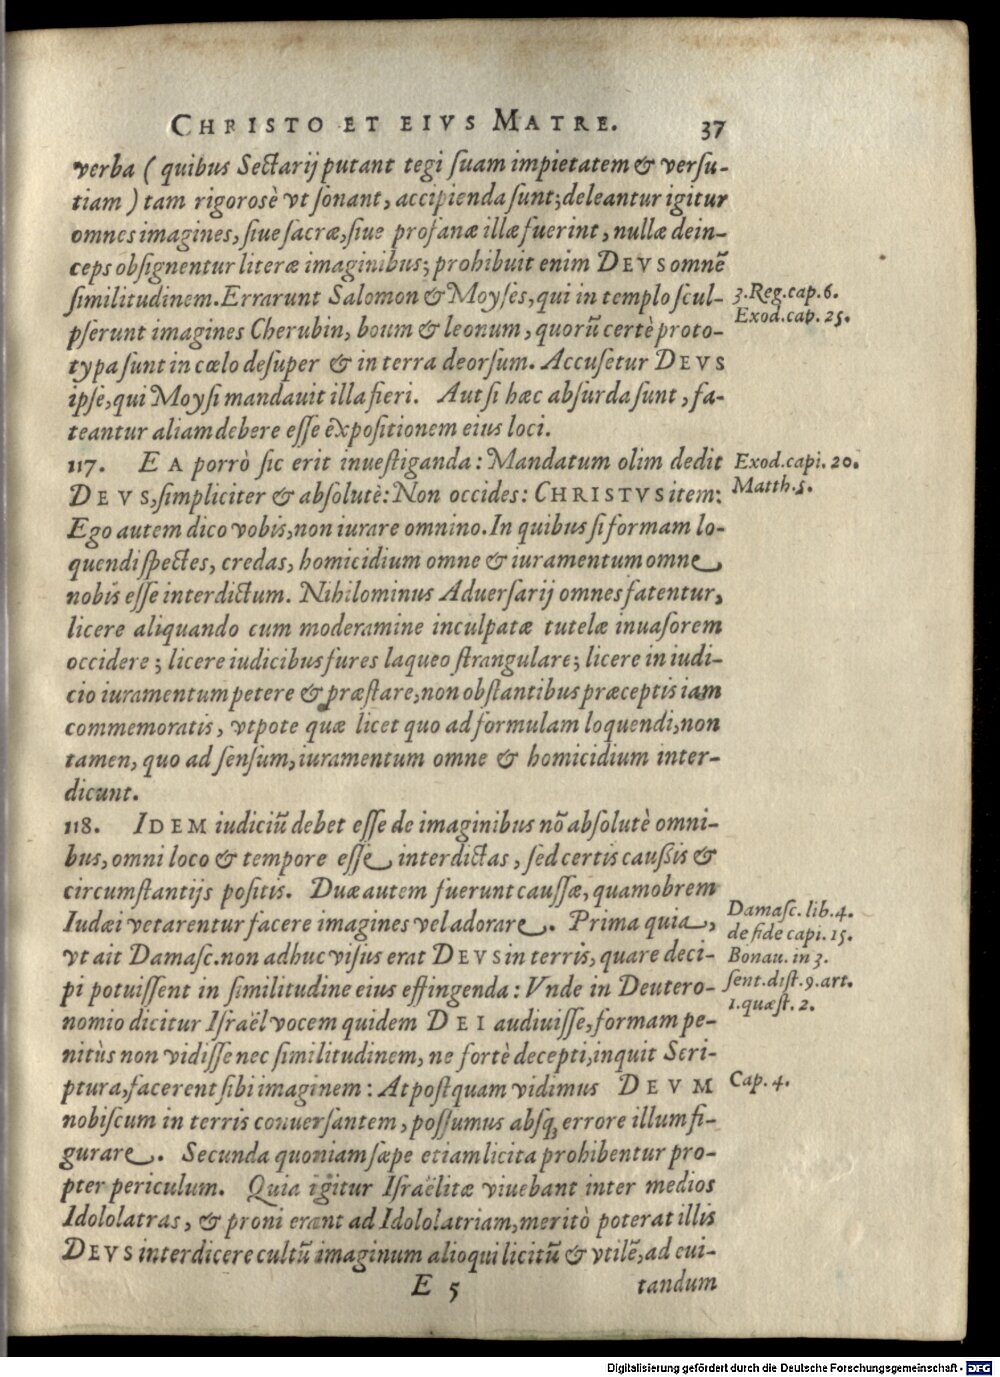 CHRISTO ET EIVS MATRE. 37
verba ( quibus Sectarij putant tegi suam impietatem & versu-
tiam ) tam rigorosè vt sonant, accipienda sunt; deleantur igitur
omnes imagines, siue sacræ, siue profanæ illæ fuerint, nullæ dein-
ceps obsignentur literæ imaginibus; prohibuit enim DEVS omnẽ
similitudinem. Errarunt Salomon & Moyses, qui in templo scul-
3.Reg.cap.6.
pserunt imagines Cherubin, boum & leonum, quorũ certè proto-
Exod.cap. 25.
typa sunt in cœlo desuper & in terra deorsum. Accusetur DEVS
ipse, qui Moysi mandauit illa fieri. Aut si hæc absurda sunt, fa-
teantur aliam debere esse expositionem eius loci.
117. EA porrò sic erit inuestiganda: Mandatum olim dedit
Exod.capi. 20.
DEVS, simpliciter & absolutè: Non occides: CHRISTVS item:
Matth.5.
Ego autem dico vobis, non iurare omnino. In quibus si formam lo-
quendi spectes, credas, homicidium omne & iuramentum omne
nobis esse interdictum. Nihilominus Aduersarij omnes fatentur,
licere aliquando cum moderamine inculpatæ tutelæ inuasorem
occidere; licere iudicibus fures laqueo strangulare; licere in iudi-
cio iuramentum petere & præstare, non obstantibus præceptis iam
commemoratis, vtpote quæ licet quo ad formulam loquendi, non
tamen, quo ad sensum, iuramentum omne & homicidium inter-
dicunt.
118. IDEM iudiciũ debet esse de imaginibus nõ absolutè omni-
bus, omni loco & tempore esse interdictas, sed certis caussis &
circumstantijs positis. Duæ autem fuerunt caussæ, quamobrem
Iudæi vetarentur facere imagines vel adorare. Prima quia,
Damasc. lib.4.
de fide capi. 15.
vt ait Damasc. non adhuc visus erat DEVS in terris, quare deci-
Bonau. in 3.
pi potuissent in similitudine eius effingenda: Vnde in Deutero-
sent.dist.9.art.
1.quæst. 2.
nomio dicitur Israël vocem quidem DEI audiuisse, formam pe-
nitùs non vidisse nec similitudinem, ne fortè decepti, inquit Scri-
ptura, facerent sibi imaginem: At postquam vidimus DEVM
Cap. 4.
nobiscum in terris conuersantem, possumus absq; errore illum fi-
gurare. Secunda quoniam sæpe etiam licita prohibentur pro-
pter periculum. Quia igitur Israëlitæ viuebant inter medios
Idololatras, & proni erant ad Idololatriam, meritò poterat illis
DEVS interdicere cultũ imaginum alioqui licitũ & vtilẽ, ad eui-
E 5 tandum
Digitalisierung gefördert durch die Deutsche Forschungsgemeinschaft - DFG